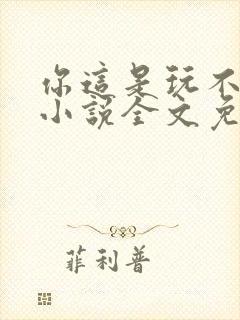 你這是玩不
小說全文免
菲利普